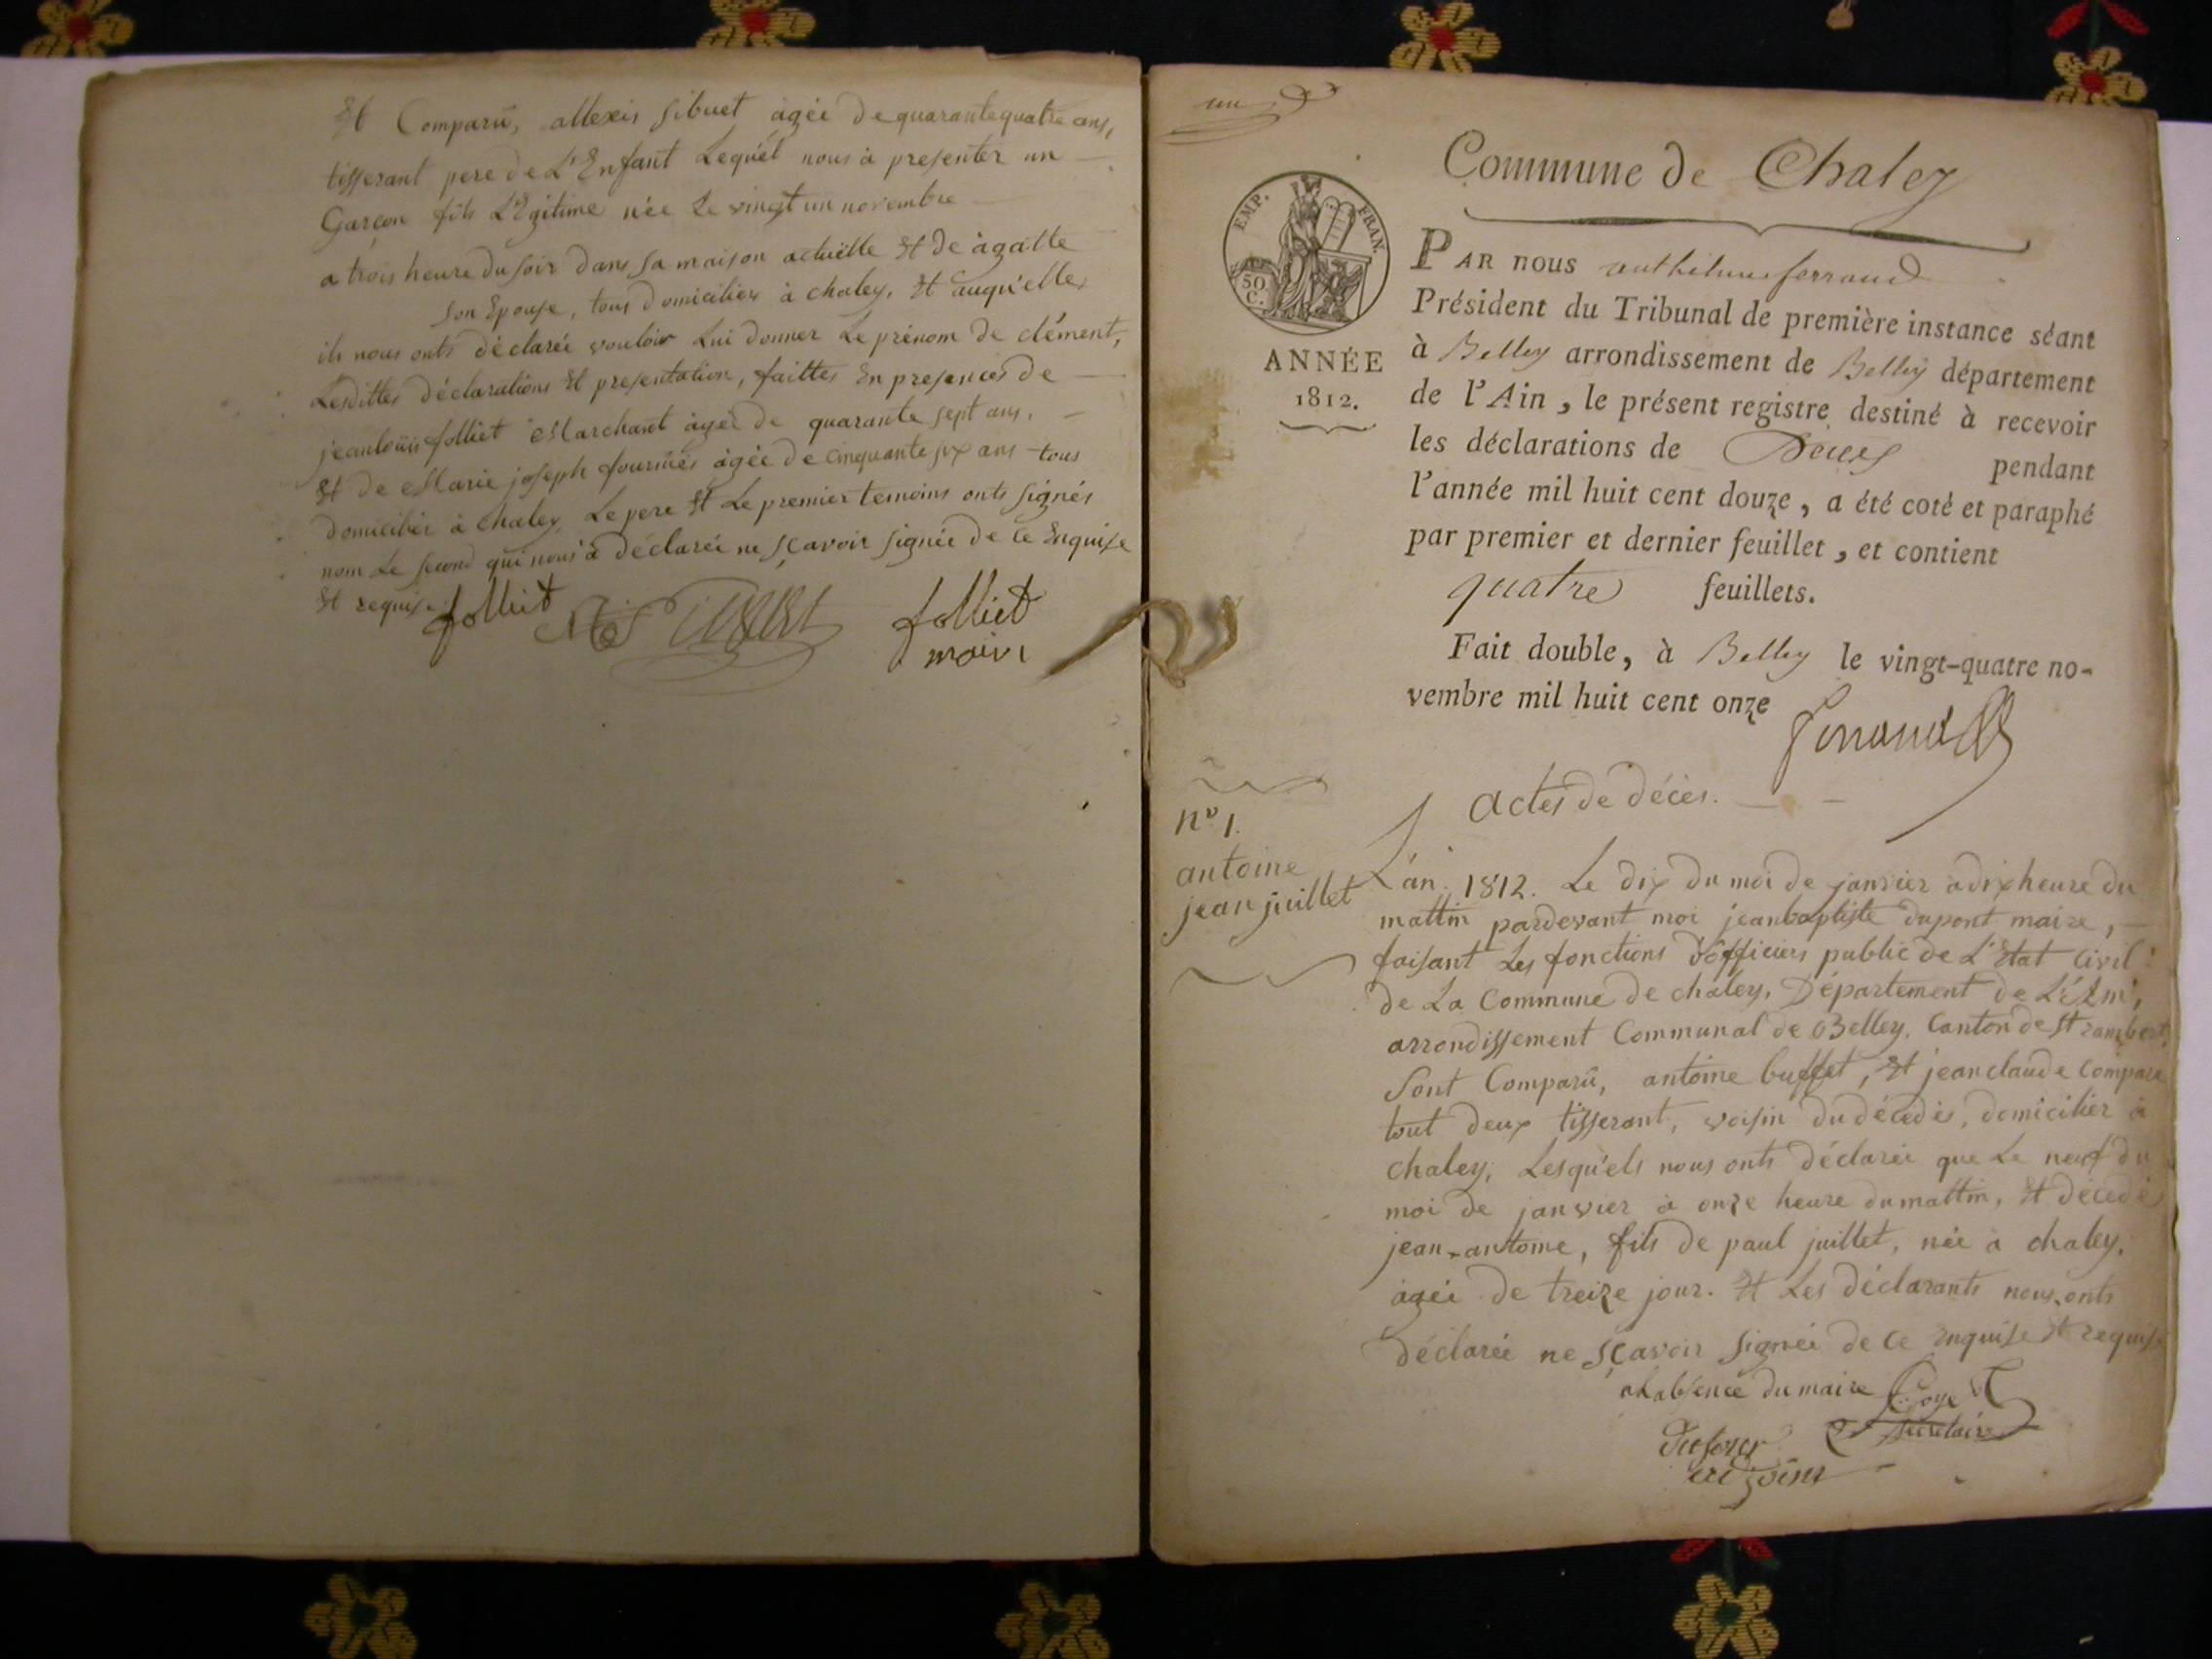 Et Comparû, allexis sibuet agée de quarantequatre ans,
tisserant pere de L'Enfant Lequél nous à presenter un
Garçon fils L'Egitime née Le vingt un novembre
a trois heure du soir dans sa maison actuëlle Et de àgatte
son Epouse, tous domicilier à chaley, Et auqu'elle
ils nous onts déclareé vouloir Lui donner Le prénom de clément,
Lesdittes déclarations Et presentation, faittes En presences de
jeanloüis folliet Marchant àgeé de quarante sept ans,
Et de Marie joseph fournier àgée de cinquante six ans tous
domicilier à chaley, Le pere Et Le premier temoins onts signés
nom Le second qui nous à déclareé ne sçavoir signée de ce Enquise
Et requise folliet
folliet
maire
un
Commune de Chaley
EMP. FRAN.
50 C.
ANNÉE
1812.
PAR nous anthelme ferrand
Président du Tribunal de première instance séant
à Belley arrondissement de Belley département
de l'Ain, le présent registre destiné à recevoir
les déclarations de Deces pendant
l'année mil huit cent douze, a été coté et paraphé
par premier et dernier feuillet, et contient
quatre feuillets.
Fait double, à Belley le vingt-quatre no-
vembre mil huit cent onze
ferrand
actes de déces.
n° 1.
antoine
jean juillet
L'an. 1812. Le dix du moi de janvier a dix heure du
mattin pardevant moi jeanbaptiste dupont maire,
faisant Les fonctions d'officiers public de L'Etat Civil
de La Commune de chaley, Département de L'Ain,
arrondissement Communal de Belley, Canton de St rambert,
Sont Comparû, antoine buffet, Et jean claude compare
tout deux tisserant, voisin du décedés, domicilier à
chaley, Lesqu'els nous onts déclareé que Le neuf du
moi de janvier à onze heure du mattin, Et décedé
jean-antoine, fils de paul juillet, née a chaley,
àgée de treize jour. Et Les déclarants nous onts
déclareé ne sçavoir signée de ce Enquise Et requise
a Labsence du maire Goyet
secretaire
adjoint